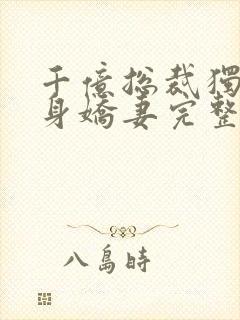 千億总裁獨
身嬌妻完整
八島時